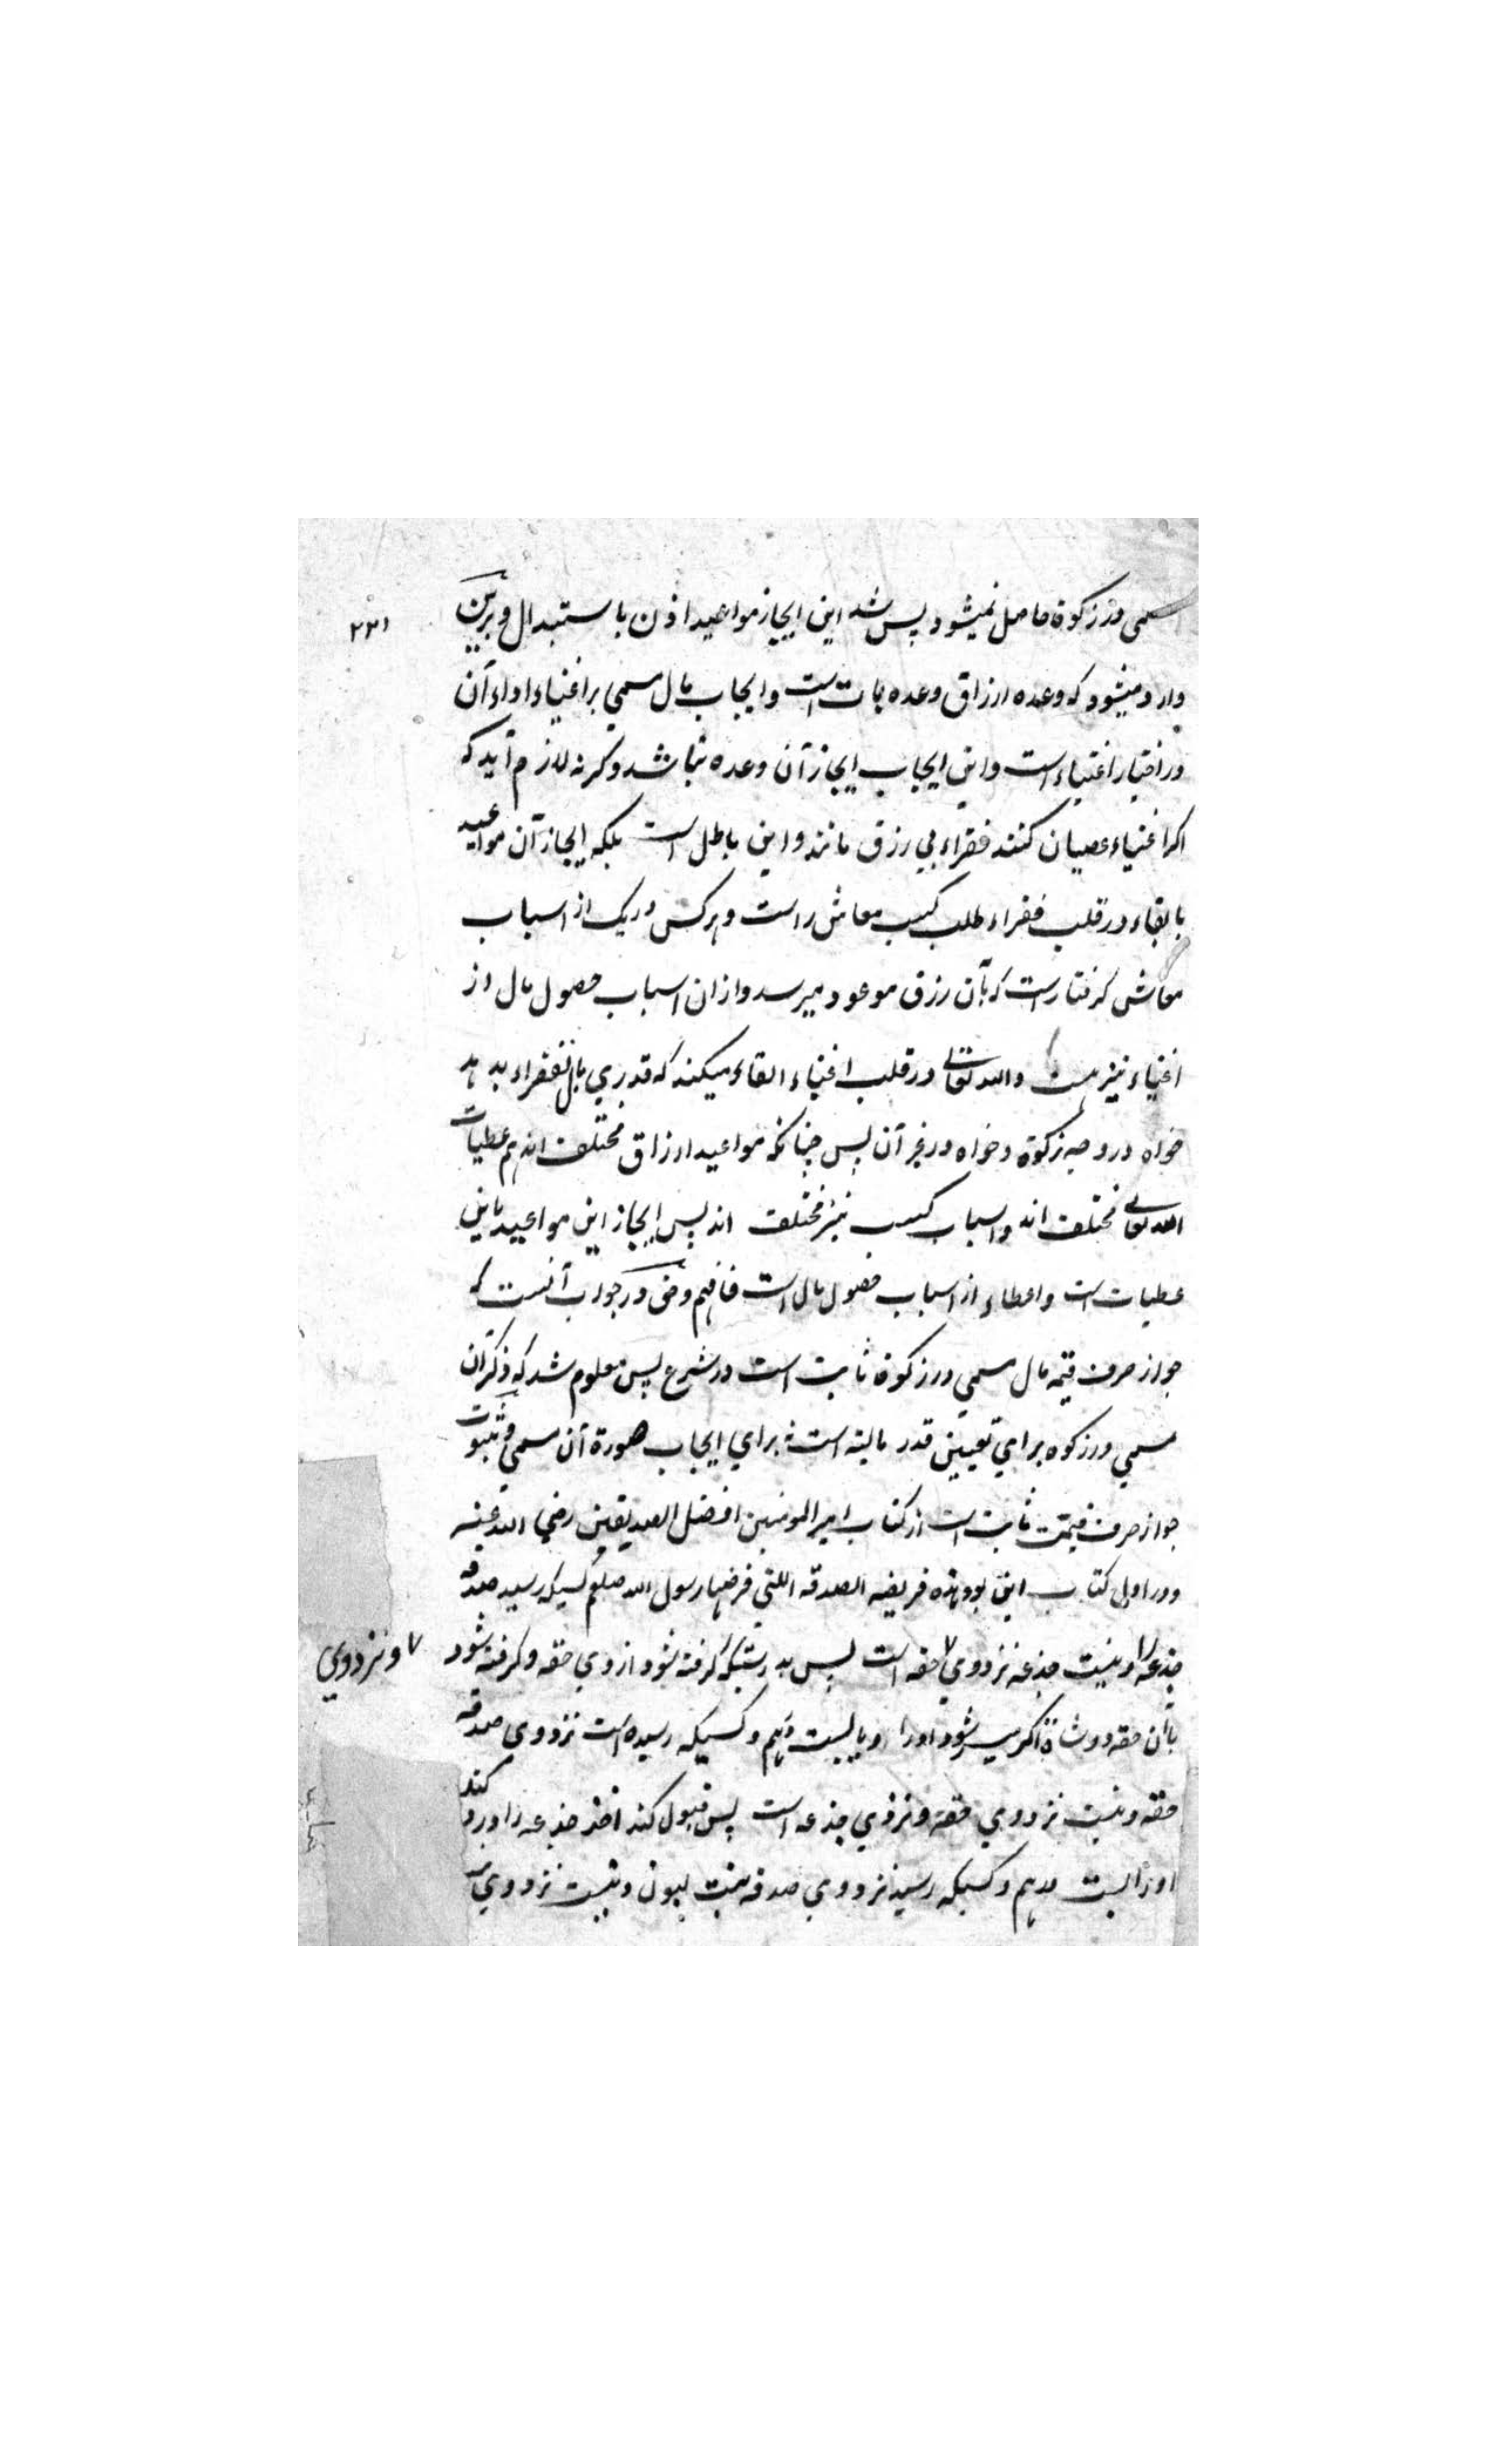 مسمی در زکوة حاصل نمیشود پس شد این ایجاز مواعید اذن باستبدال و برین
۲۳۱
وارد میشود که وعده ارزاق وعده بات است وایجاب مال مسمی بر اغنیاء اداء آن
در اختیار اغنیاء است واین ایجاب ایجاز آن وعده نباشد وکرنه لازم آید که
اکر اغنیاء عصیان کنند فقراء بی رزق مانند واین باطل است بلکه ایجاز آن مواعید
بالقاء در قلب فقراء طلب کسب معاش راست وهر کس در یک از اسباب
معاش کرفتار است که بآن رزق موعود میرسد وازان اسباب حصول مال از
اغنیاء نیز هست والله تعالی در قلب اغنیاء القاء میکند که قدری مال بفقراء بدهد
خواه در وجه زکوة وخواه در غیر آن پس چنانکه مواعید ارزاق مختلف اند هم عطیات
الله تعالی مختلف اند واسباب کسب نیز مختلف اند پس ایجاز این مواعید باین
عطیات است واعطاء از اسباب حصول مال است فافهم وحق در جواب آنست که
جواز صرف قیمة مال مسمی در زکوة ثابت است در شرع پس معلوم شد که ذکر آن
مسمی در زکوه برای تعیین قدر مالیة است نه برای ایجاب صورة آن مسمی وثبوت
جواز صرف قیمت ثابت است از کتاب امیر المومنین افضل الصدیقین رضی الله عنه
ودر اول کتاب این بود هذه فریضه الصدقه اللتی فرضها رسول الله صلعم کسیکه رسید صدقه
جذعه او نیست جذعه نزد وی ۷ حقه است پس بدرستیکه کرفته شود از وی حقه وکرفته شود
۷ ونزد وی
باآن حقه دو شاة اکر میسر شود او را ویا بیست درهم وکسیکه رسیده است نزد وی صدقه
حقه ونیست نزد وی حقه ونزد وی جذعه است پس قبول کند اخذ جذعه را ورد کند
او را بیست درهم وکسیکه رسید نزد وی صدقه بنت لبون ونیست نزد وی